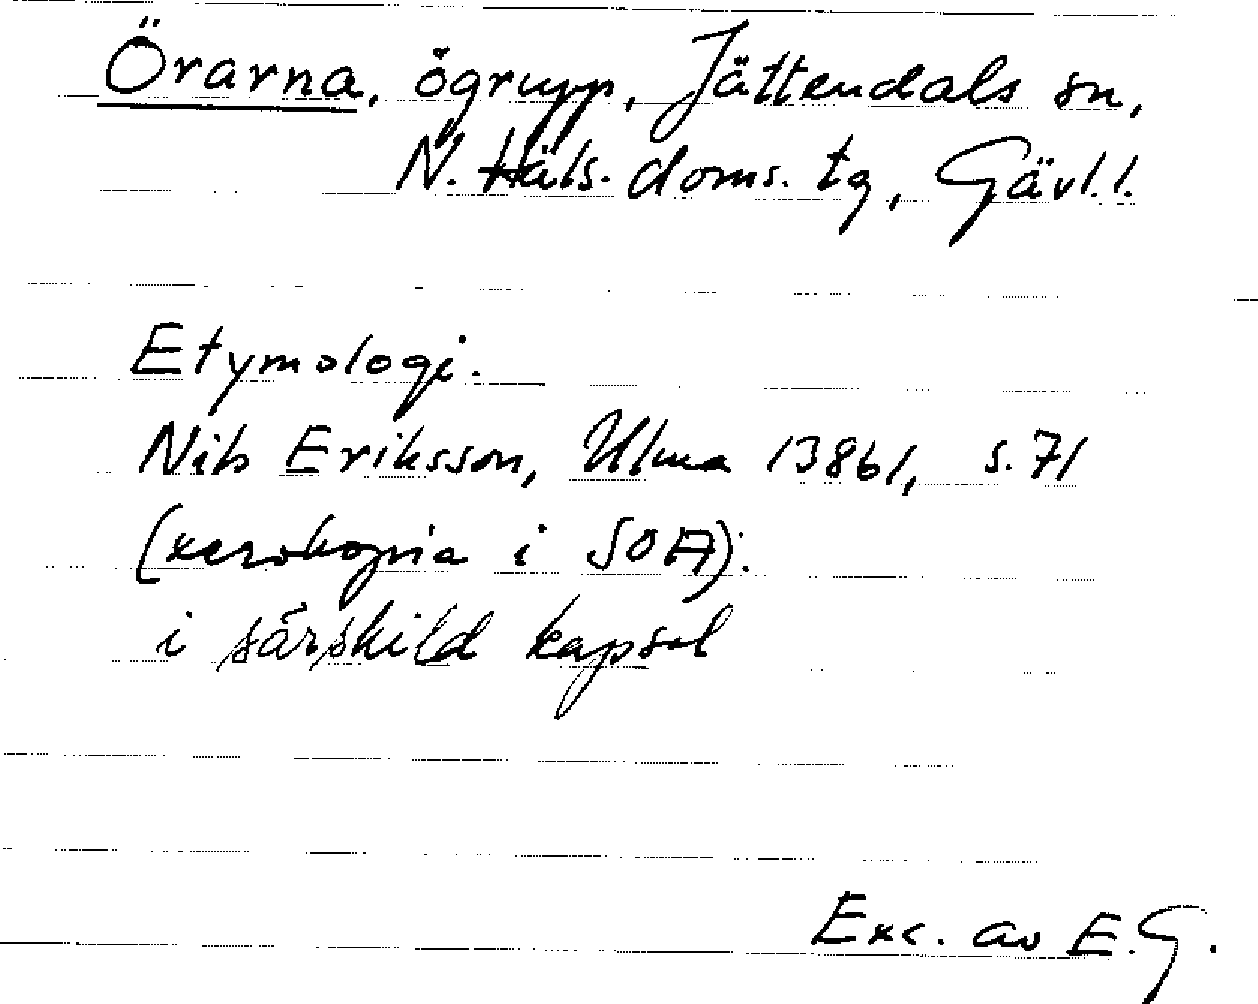 Örarna, ögrupp, Jättendals sn,
N. Häls. doms. tg, Gävl. l.
Etymologi.
Nils Eriksson, Ulma 13861, s. 71
(xerokopia i SOA).
i särskild kapsel
Exc. av E.G.